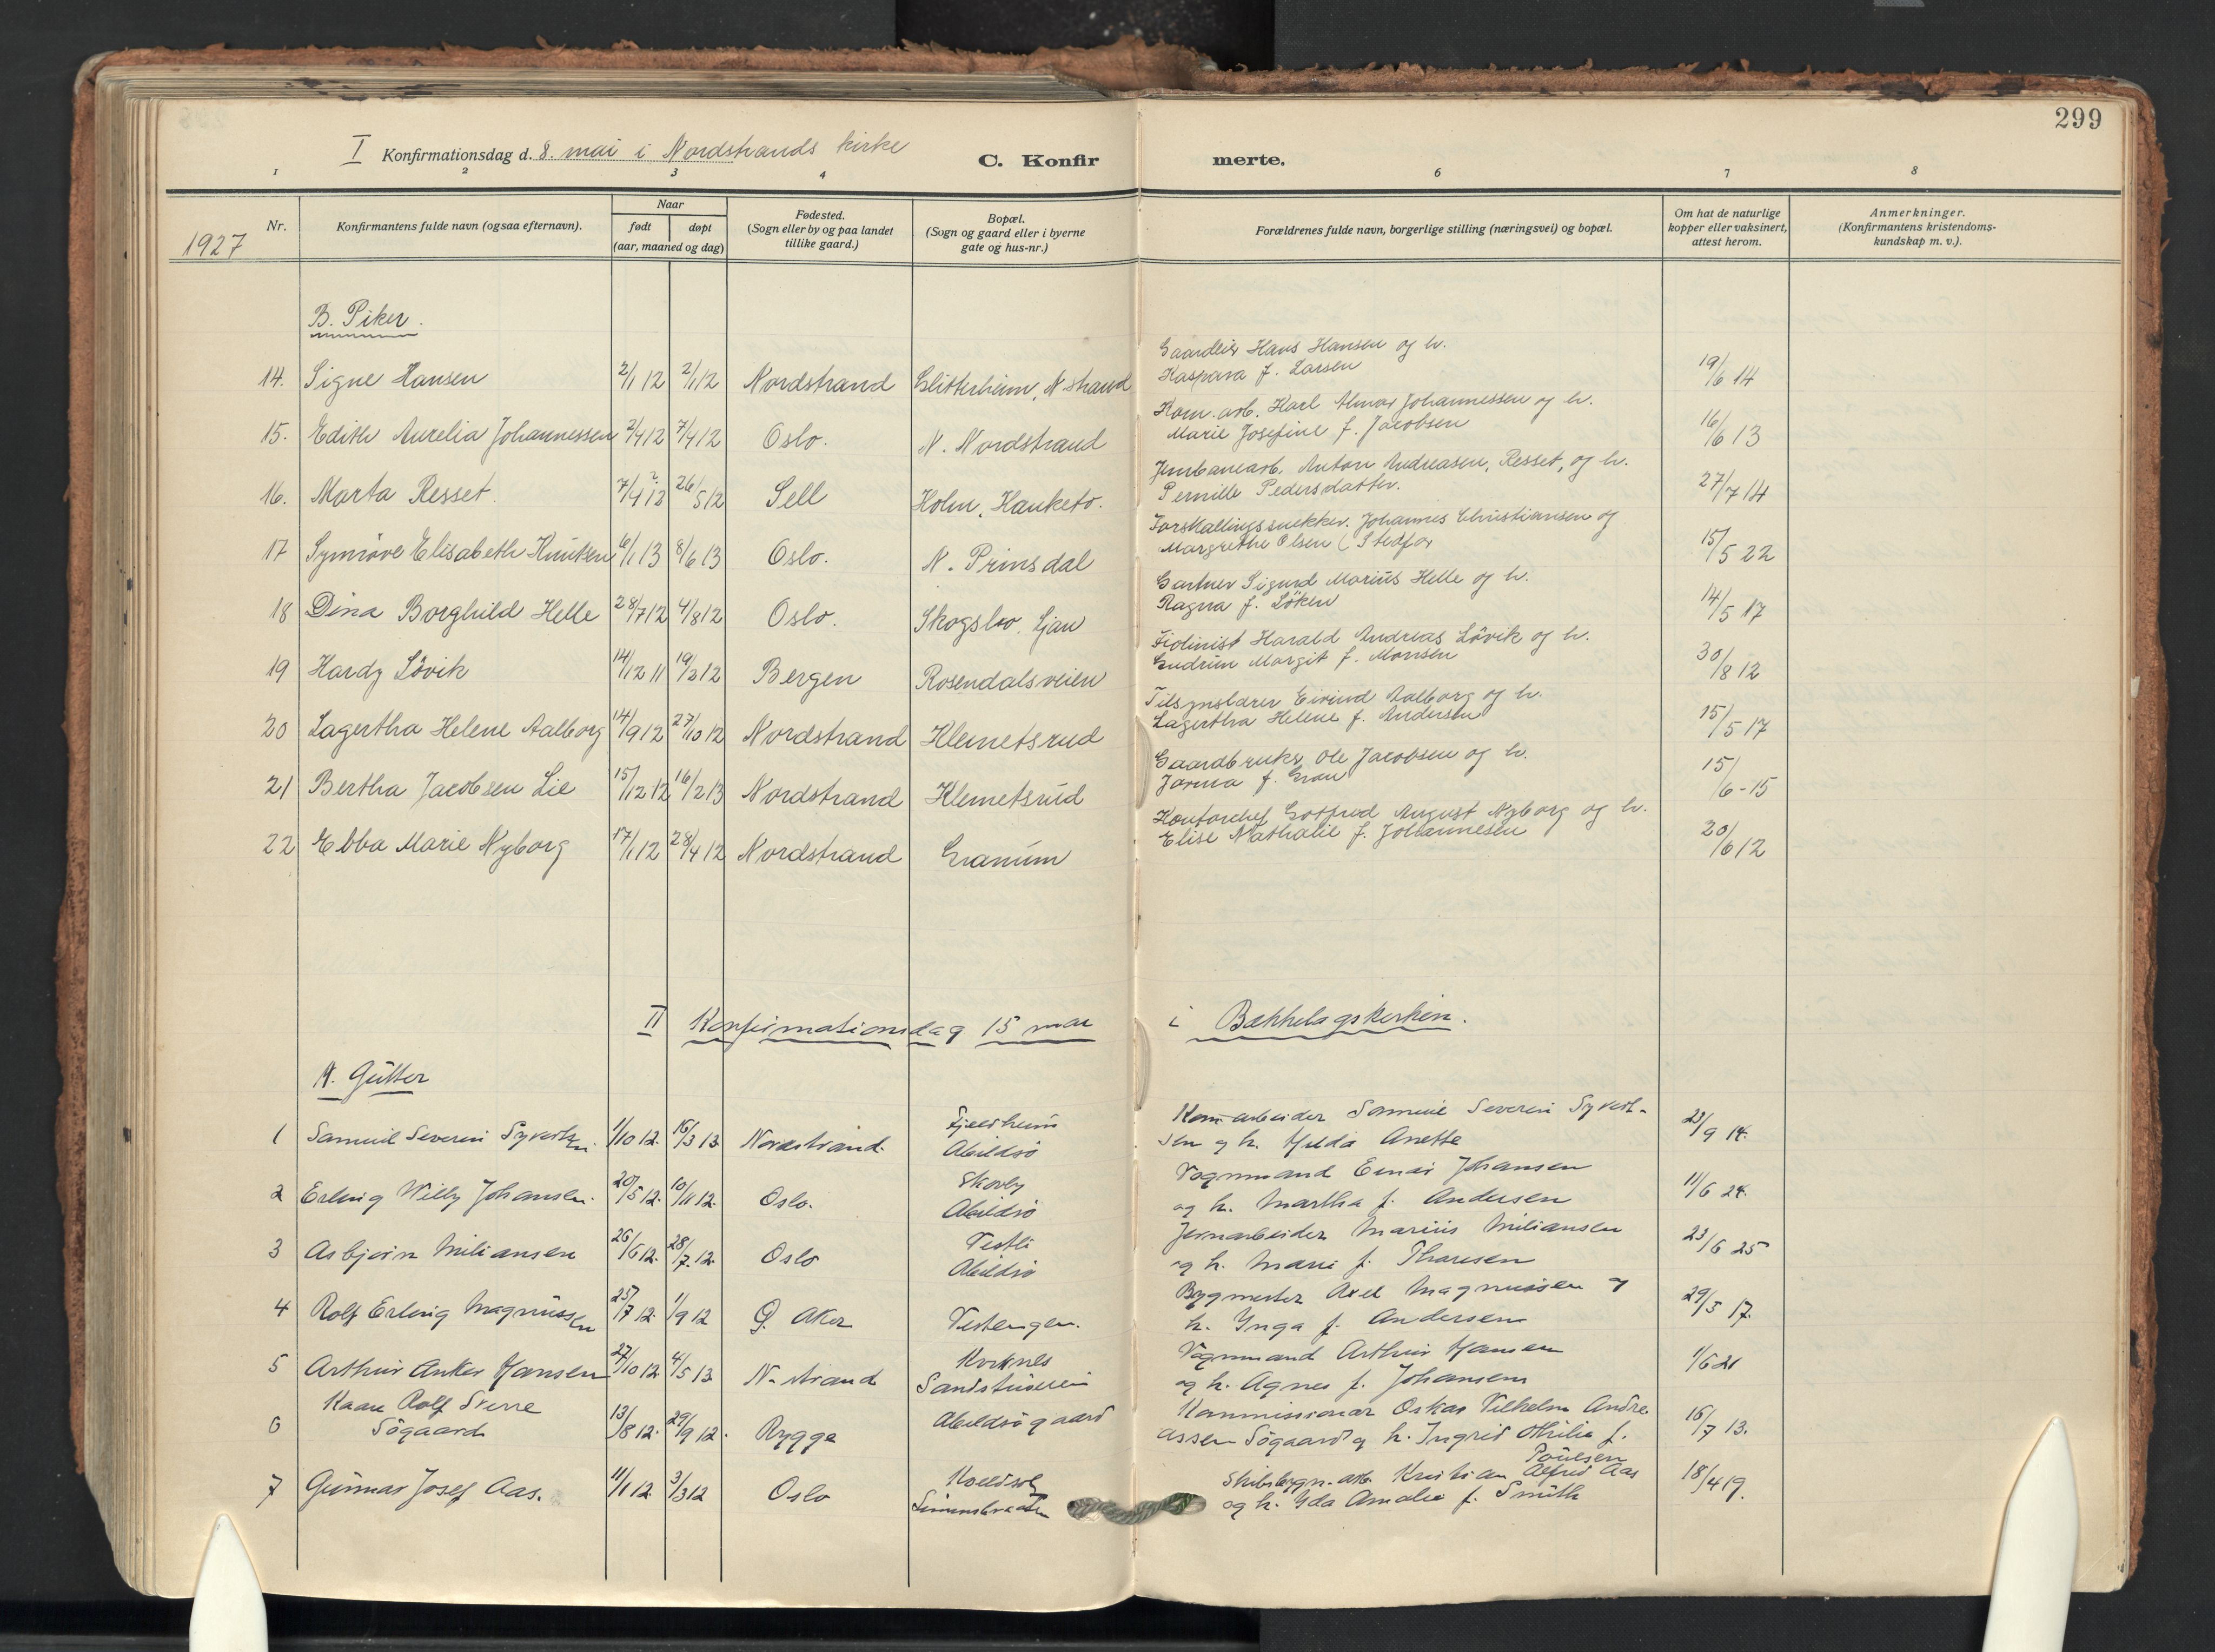 299
I Konfirmationsdag d. 8. mai i Nordstrands kirke
C. Konfirmerte.
1 2 3 4 6 7 8
1927
Nr.
Konfirmantens fulde navn (ogsaa efternavn).
Naar
født døpt
(aar, maaned og dag)
Fødested.
(Sogn eller by og paa landet
tillike gaard.)
Bopæl.
(Sogn og gaard eller i byerne
gate og hus-nr.)
Forældrenes fulde navn, borgerlige stilling (næringsvei) og bopæl.
Om hat de naturlige
kopper eller vaksinert,
attest herom.
Anmerkninger.
(Konfirmantens kristendoms-
kundskap m. v.).
B. Piker.
Gaardeier Hans Hansen og h.
14. Signe Hansen 2/1 12 2/12 Nordstrand Glitterheim, N. strand Kaspara f. Larsen 19/6 14
Kom. arb. Karl Almar Johannessen og h.
15. Edith Aurelia Johannessen 2/4 12 7/4 12 Oslo. N. Nordstrand Marie Josefine f. Jacobsen 16/6 13
Jernbanearb. Anton Andreasen, Resset, og h.
16. Marta Resset 7/4 12 26/5 12 Sell Holm, Hauketo. Pernille Pedersdatter. 27/7 14
Forskallingssnekker. Johannes Christiansen og
17 Synnöve Elisabeth Knutsen 6/1 13 8/6 13 Oslo. N. Prinsdal Margrethe Olsen (Stedfar 15/5 22
Gartner Sigurd Marius Helle og h.
18 Dina Borghild Helle 28/7 12 4/8 12 Oslo. Skogsbo, Ljan Ragna f. Löken 14/5 17
Fiolinist Harald Andreas Lövik og h.
19 Hardy Lövik 14/12 11 19/3 12 Bergen Rosendalsveien Gudrun Margit f. Monsen 30/8 12
Tilsynslærer Eivind Aalborg og h.
20 Lagertha Helene Aalborg 14/9 12 27/10 12 Nordstrand Klemetsrud Lagertha Helene f. Andersen 15/5 17
Gaardbruker Ole Jacobsen og h.
21 Bertha Jacobsen Lie 15/12 12 16/2 13 Nordstrand Klemetsrud f. Gran 15/6-15
Kontorchef Gotfred August Nyborg og h.
22 Ebba Marie Nyborg 17/1 12 28/4 12 Nordstrand Granum Elise Nathalie f. Johannesen 20/6 12
II Konfirmationsdag 15 mai i Bækkelagskirken.
A. Gutter
Fjeldheim Kom-arbeider Samuel Severin Syvert-
1 Samuel Severin Syvertsen. 1/10 12. 16/3 13 Nordstrand. Abildsö sen og h. Hulda Anette 23/9 14.
Skovly Vognmand Einar Johansen
2 Erling Willy Johansen. 20/5 12. 10/11 12. Oslo. Abildsö og h. Martha f. Andersen 11/6 24.
Vestli Jernarbeider Marius Miliansen
3 Asbjørn Miliansen 26/6 12. 28/7. 12. Oslo Abildsö og h. Marie f. Thoresen 23/6 25
Bygmester Axel Magnussen og
4 Rolf Erling Magnussen 25/7 12. 1/9 12 Ø. Aker Vestengen. h. Ynga f. Andersen 29/5 17.
Vognmand Arthur Hansen
5 Arthur Anker Hansen 27/10 12 4/5 13 N. strand Sandstuveien og h. Agnes f. Johansen 1/6 21
Kaare Rolf Sverre Kommissionær Oskar Vilhelm Andre
6 Sögaard 13/8 12. 29/9 12. Rygge Abildsö gaard assen Sögaard og h. Ingrid Othilie f. 16/7 13.
Poulsen
Skibsbygn. arb. Kristian Alfred Aas
7 Gunnar Josef Aas. 11/1 12. 3/3 12 Oslo og h. Yda Amalie f. Smith 18/4 19.